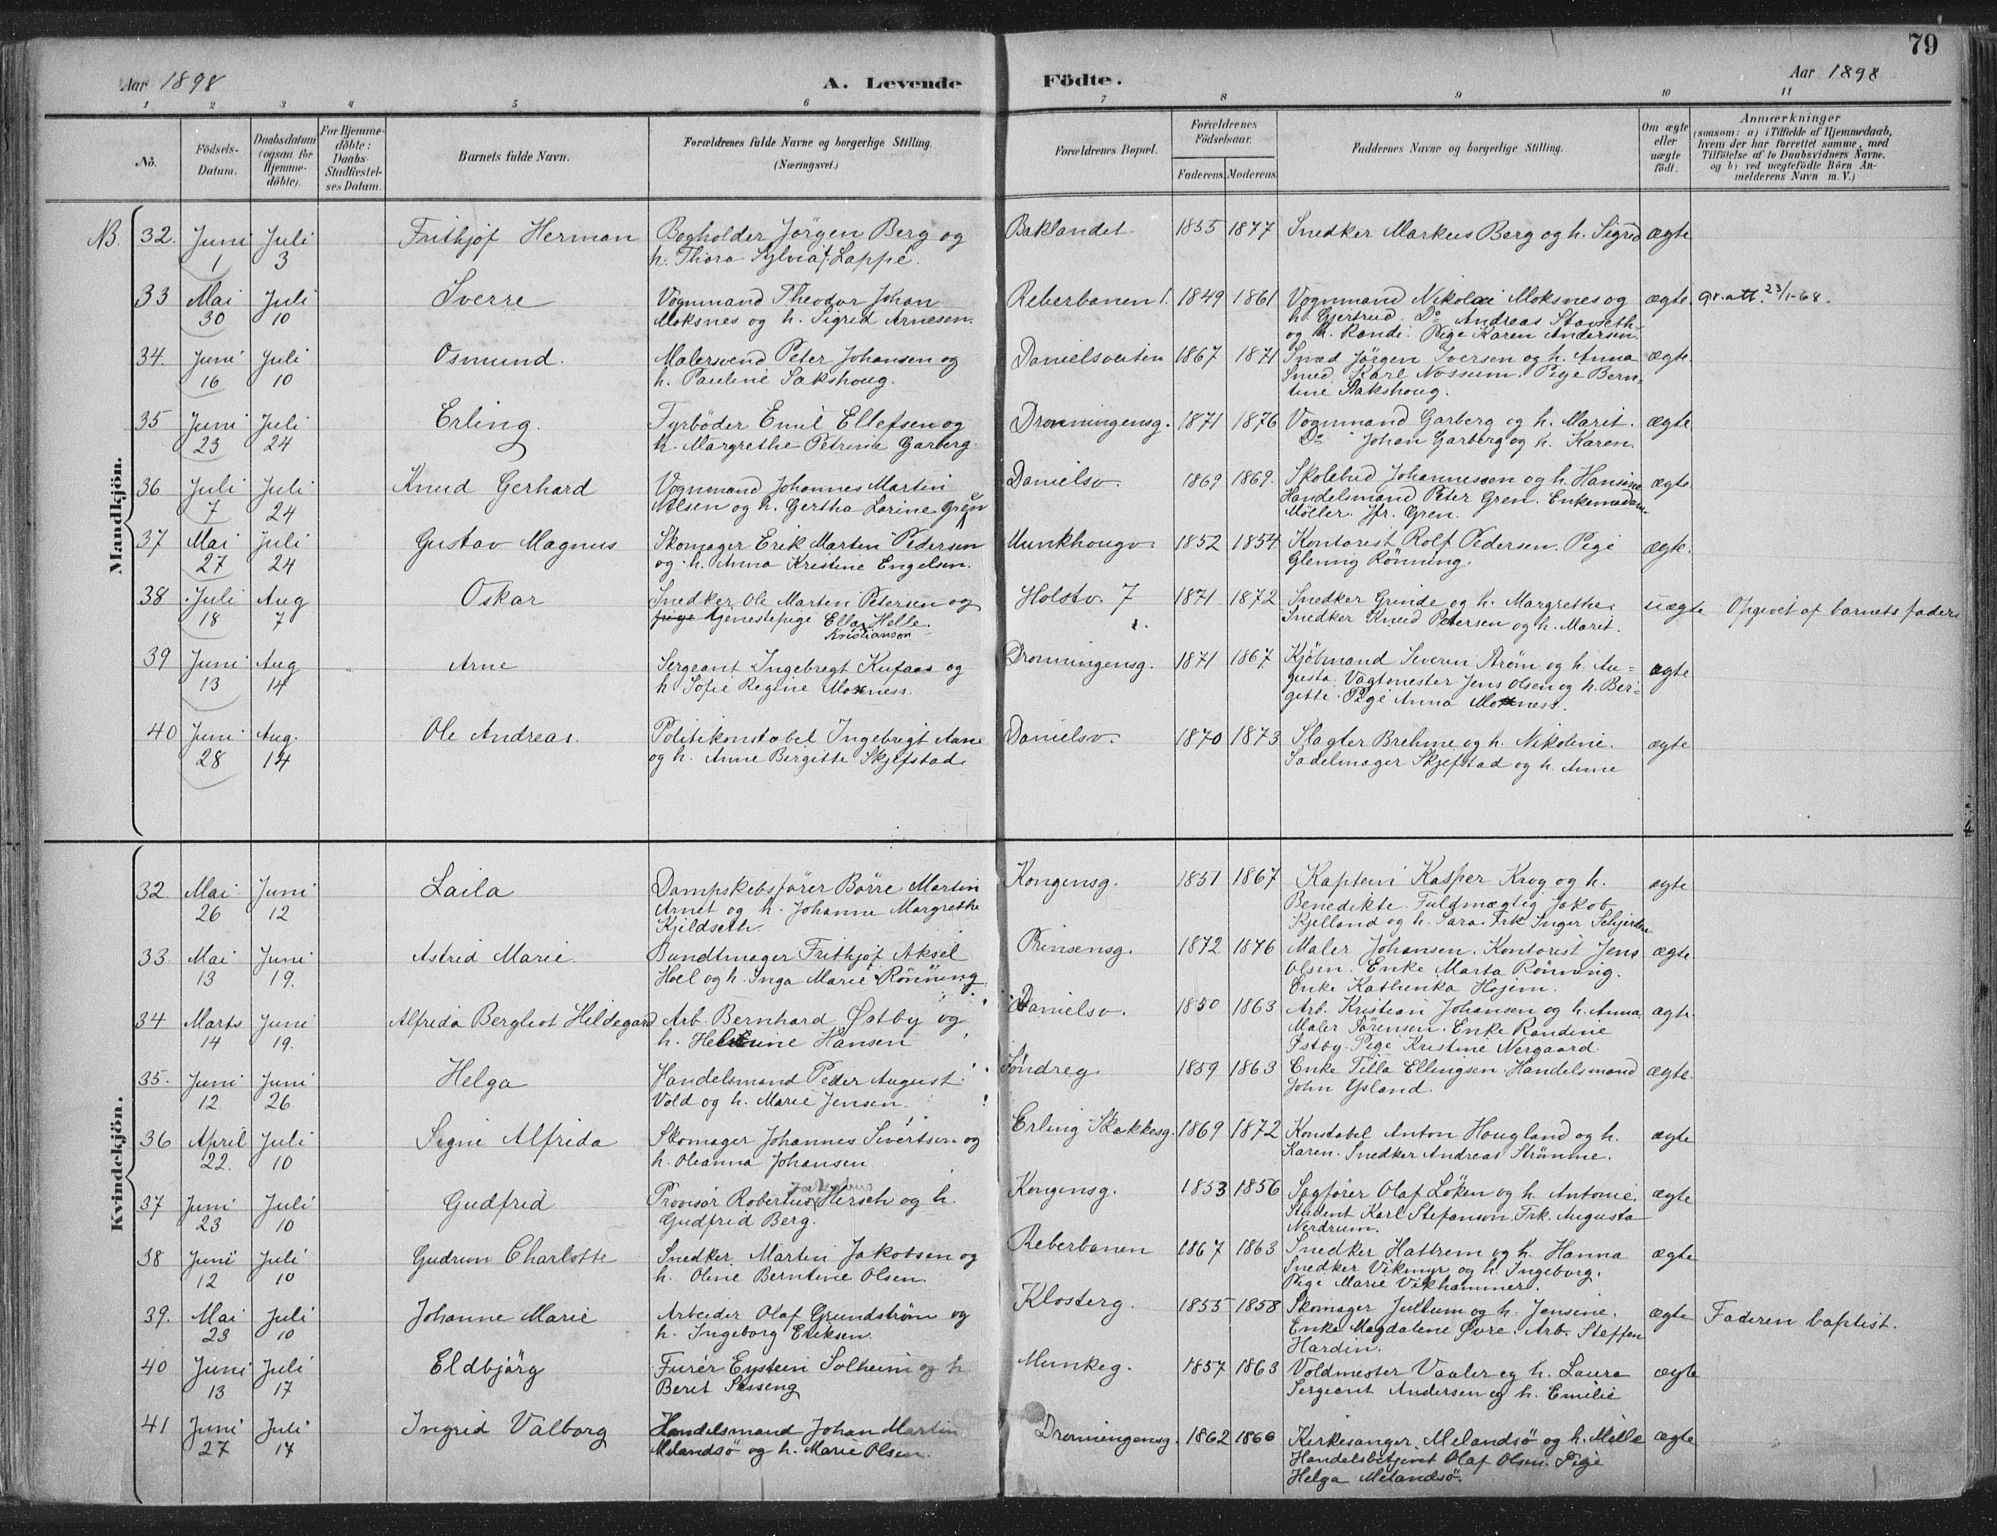 79
Aar 1898
A. Levende Fødte.
Aar 1898
1 2 3 4 5 6 7 8 9 10 11
No.
Fødsels-Datum.
Daabsdatum (ogsaa for Hjemmedøbte).
For Hjemmedøbte: Daabs-Stadfæstelses Datum.
Barnets fulde Navn.
Forældrenes fulde Navne og borgerlige Stilling. (Næringsvei.)
Forældrenes Bopæl.
Forældrenes Fødselsaar.
Faderens. Moderens.
Faddernes Navne og borgerlige Stilling.
Om ægte eller uægte født.
Anmærkninger
(saasom: a) i Tilfælde af Hjemmedaab,
hvem der har forrettet samme, med
Tilføielse af to Daabsvidners Navne.
og b) ved uægtefødte Børn An-
melderens Navn m. V.)
Mandkjön.
NB. 32. Juni 1 Juli 3 Frithjof Herman Bogholder Jörgen Berg og Baklandet 1855 1877 Snedker Markus Berg og h. Sigrid ægte
h. Thora Sylvia f. Lappe.
33 Mai 30 Juli 10 Sverre Vognmand Theodor Johan Reberbanen 1. 1849 1861 Vognmand Nikolai Moksnes og ægte. gr. att. 23/1-68.
Moksnes og h. Sigrid Arnesen. h. Gjertrud. Do Andreas Stavseth
og h. Randi. Pige Karen Andersen.
34. Juni 16 Juli 10 Osmund. Malersvend Peter Johansen og Danielsveiten 1867 1871 Smed Jörgen Iversen og h. Anna ægte.
h. Pauline Sakshoug. Smed Karl Nossum. Pige Bern-
tine Sakshoug.
35 Juni 23 Juli 24 Erling. Fyrböder Emil Ellefsen og Dronningensg. 1871 1876 Vognmand Garberg og h. Marit. ægte
h. Margrethe Petrine Garberg. Do Johan Garberg og h. Karen.
36 Juli 7 Juli 24 Knud Gerhard Vognmand Johannes Martin Danielsv. 1869 1869. Skolebud Johannessen og h. Hansine ægte
Nilsen og h. Gertha Larine Gren Handelsmand Peter Gren. Enkemadam
Möller. Jfr. Gren.
37 Mai 27 Juli 24 Gustav Magnus Skomager Erik Martin Pedersen Munkhougv. 1852 1854 Kontorist Rolf Pedersen. Pige ægte.
og h. Anna Kristine Engelsen. Rönning.
38 Juli 18 Aug 7 Oskar Snedker Ole Martin Petersen og Holstv. 7 1871 1872 Snedker Grinde og h. Margrethe. uægte Opgivet af barnets fader
Tjenestepige Ella Helle Snedker Knud Petersen og h. Marit.
Kristianson
39 Juni 13 Aug 14 Arne Sergeant Ingebregt Kufaas og Dronningensg. 1871 1867 Kjöbmand Severin Ström og h. Au- ægte
h Sofie Regine Moxness. gusta. Vagtmester Jens Olsen og h. Ber-
gitte. Pige Anna Moxness.
40 Juni 28 Aug. 14 Ole Andreas. Politikonstabel Ingebrigt Aune Danielsv. 1870 1873 Slagter Brehme og h. Nikoline. ægte
og h. Anne Birgitte Skjefstad. Sadelmager Skjefstad og h. Anne
Kvindekjön.
32 Mai 26 Juni 12 Laila Dampskibsfører Börre Martin Kongensg. 1851 1867 Kaptein Kasper Krog og h. ægte
Arnet og h. Johanne Margrethe Benedikte. Fuldmægtig Jakob
Kjeldseth. Kjelland og h. Sara. Frk Inger
33. Mai 13 Juni 19. Astrid Marie. Bundtmager Frithjof Aksel Prinsensg. 1872 1876 Maler Johansen. Kontorist Jens ægte.
Hoel og h. Inga Marie Rönning Olsen. Enke Marta Rönning.
Enke Kathinka Hojem.
34 Marts 14 Juni 19. Alfrida Bergliot Hildegard Arb. Bernhard Østby og Danielsv. 1850 1863 Arb. Kristian Johansen og h. Anna ægte.
h. Hansen Maler Sörensen. Enke Randine
Østby. Pige Kristine Nergaard.
35. Juni 12. Juni 26 Helga Handelsmand Peder August Söndreg. 1859 1863 Enke Tilla Ellingsen. Handelsmand ægte.
Vold og h. Marie Jensen. John Ysland.
36 April 22. Juli 10 Signe Alfrida Skomager Johannes Sivertsen og Erling Skakkesg. 1869 1872 Konstabel Anton Hougland og h. ægte
h. Oleanna Johansen. Karen. Snedker Andreas Strömme.
37 Juni 23 Juli 10 Gudfrid Provisor Robertus Hirsch og h. Kongensg. 1853 1856 Sagfører Olaf Löken og h. Antonie. ægte
Gudfrid Berg. Student Karl Stefanson. Frk. Augusta
Nerdrum.
38 Juni 12 Juli 10 Gudrun Charlotte Snedker Martin Jakobsen og Reberbanen 1867 1863 Snedker Hattrem og h. Hanna ægte
h. Oline Berntine Olsen. Snedker Vikmyr og h. Ingeborg.
Pige Marie Vikhammer.
39. Mai 23 Juli 10 Johanne Marie Arbeider Olaf Grundström og Klosterg. 1855 1858 Skomager Jullum og h. Jensine. ægte Faderen baptist.
h. Ingeborg Eriksen. Enke Magdalene Øvre. Arb. Steffen
Hardin.
40 Juni 13 Juli 17 Eldbjörg Furér Eystein Solheim og h Munkeg. 1857 1863 Voldmester Vaaler og h. Laura ægte
Berit Sesseng Sergeant Andersen og h. Emilie
41 Juni 27 Juli 17 Ingrid Valborg Handelsmand Johan Martin Dronningensg. 1862 1866 Kirkesanger Melandsö og h. Mille ægte
Melandsö og h. Marie Olsen. Handelsbetjent Olaf Olsen. Pige
Helga Melandsö.